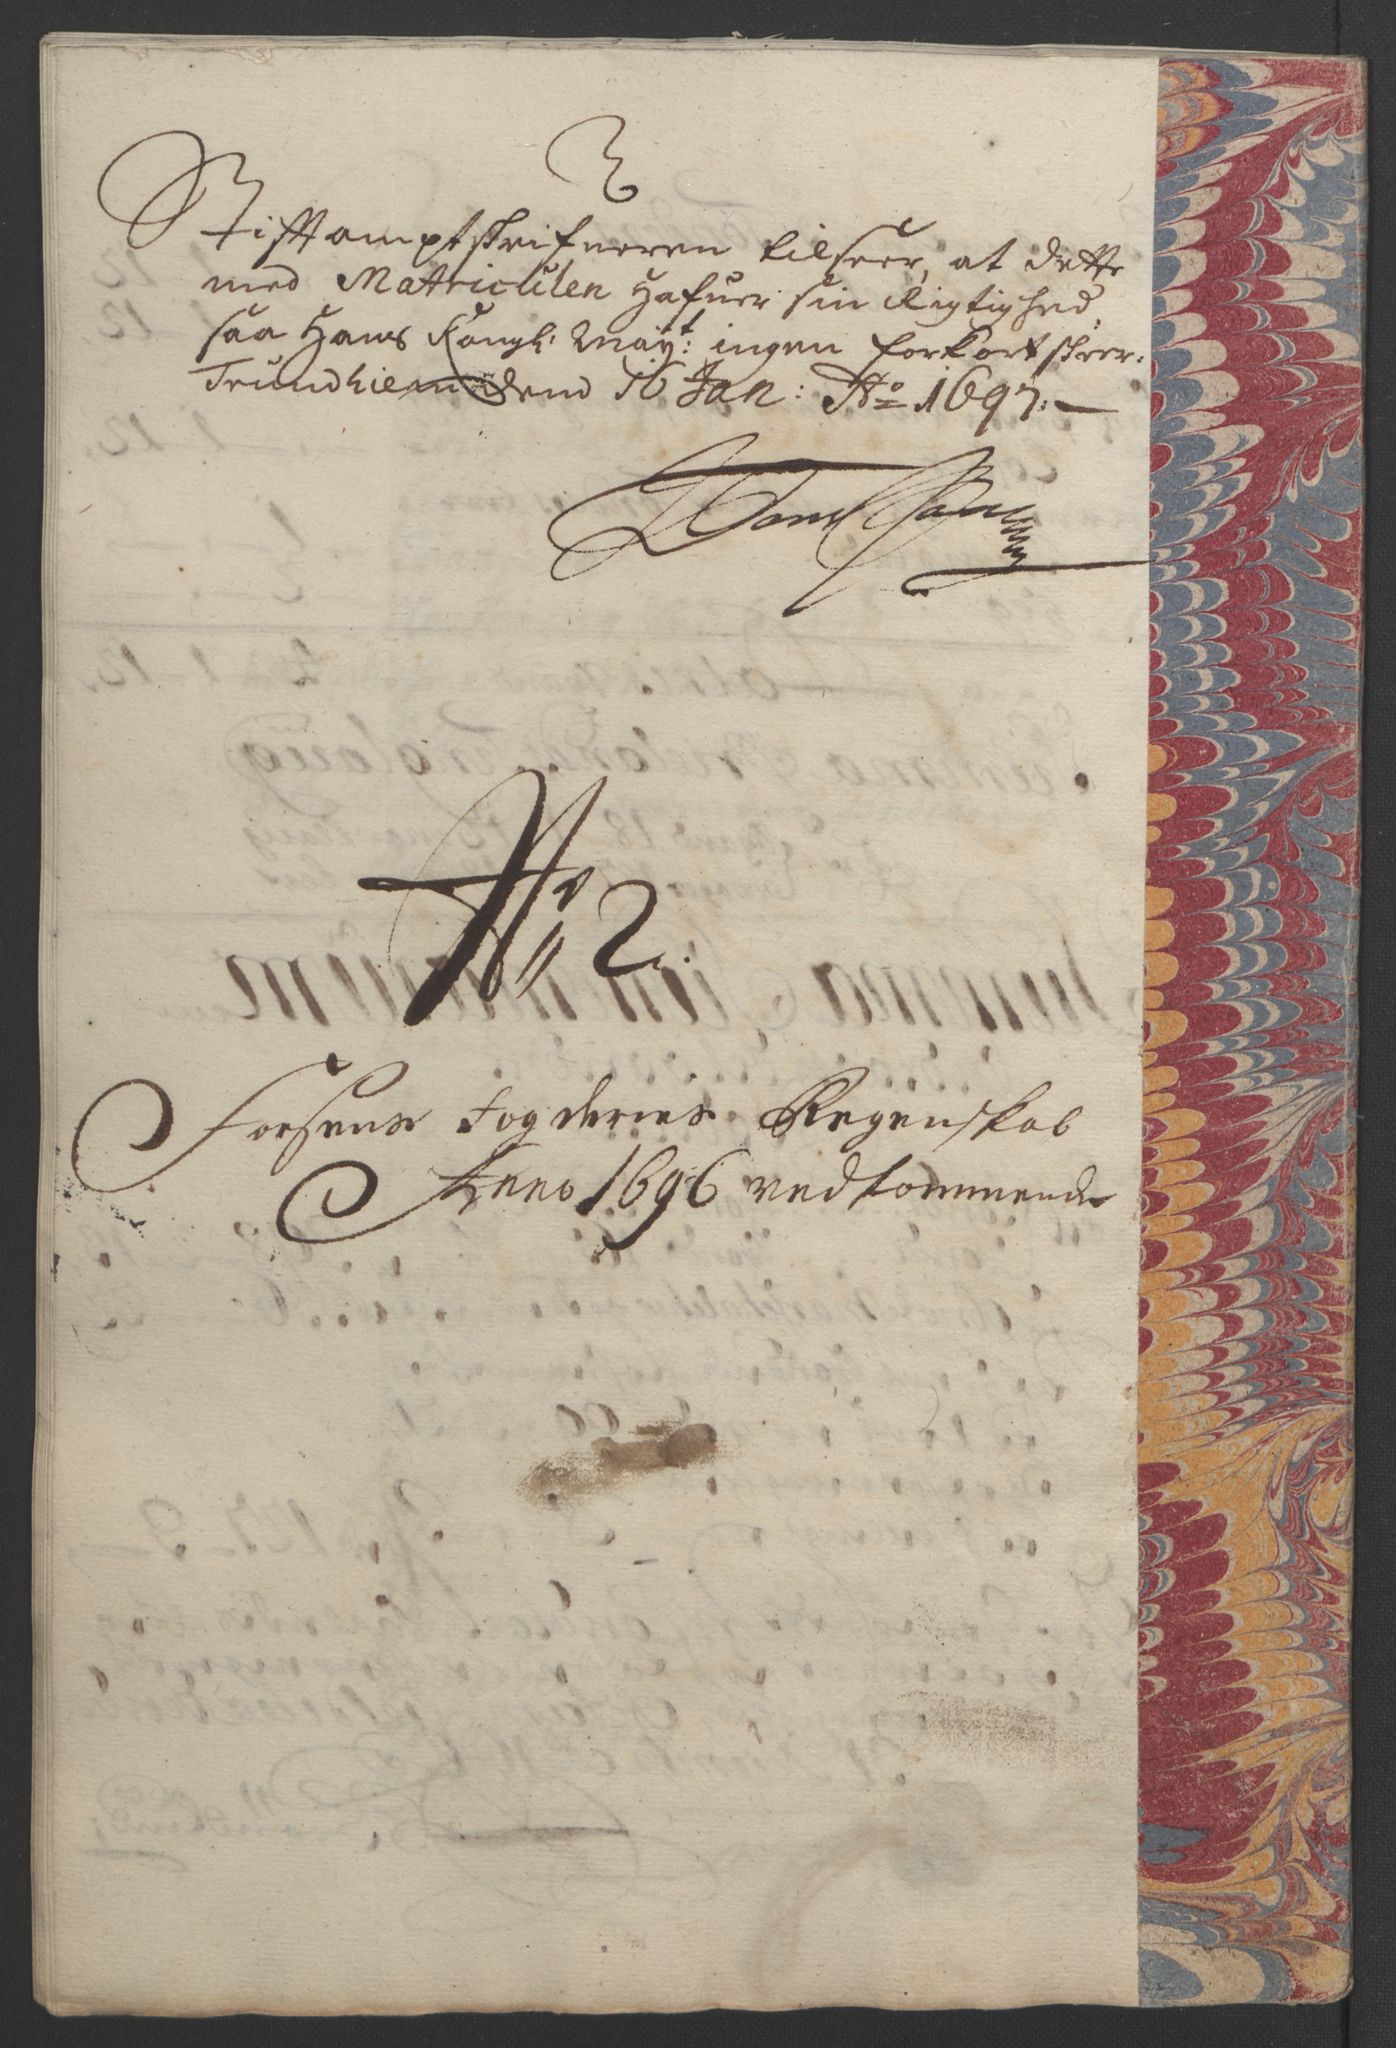 Stifftamptskrifueren tilseer, at dette
med Matriculen hafuer sin Rigtighed,
saa Hans Kongl: Mayt: ingen forkort skeer.
Trundhiem dend 16 Jan: Ao 1697.
No 2.
Fosens fogderies Regenskab
Anno 1696 vedkommende